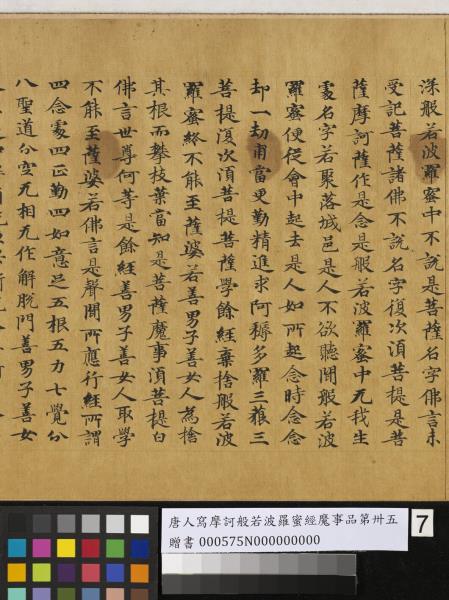 深般若波羅蜜中不說是菩薩名字佛言未
受記菩薩諸佛不說名字復次湏菩提是菩
薩摩訶薩作是念是般若波羅蜜中无我生
處名字若聚落城邑是人不欲聽聞般若波
羅蜜便從會中起去是人如所起念時念念
却一劫甫當更勤精進求阿耨多羅三藐三
菩提復次湏菩提菩薩學餘經棄捨般若波
羅蜜終不能至薩婆若善男子善女人為捨
其根而攀枝葉當知是菩薩魔事湏菩提白
佛言世尊何等是餘經善男子善女人取學
不能至薩婆若佛言是聲聞所應行經所謂
四念處四正勤四如意足五根五力七覺分
八聖道分空无相无作解脫門善男子善女
唐人寫摩訶般若波羅蜜經魔事品第卅五
贈書 000575N000000000
7